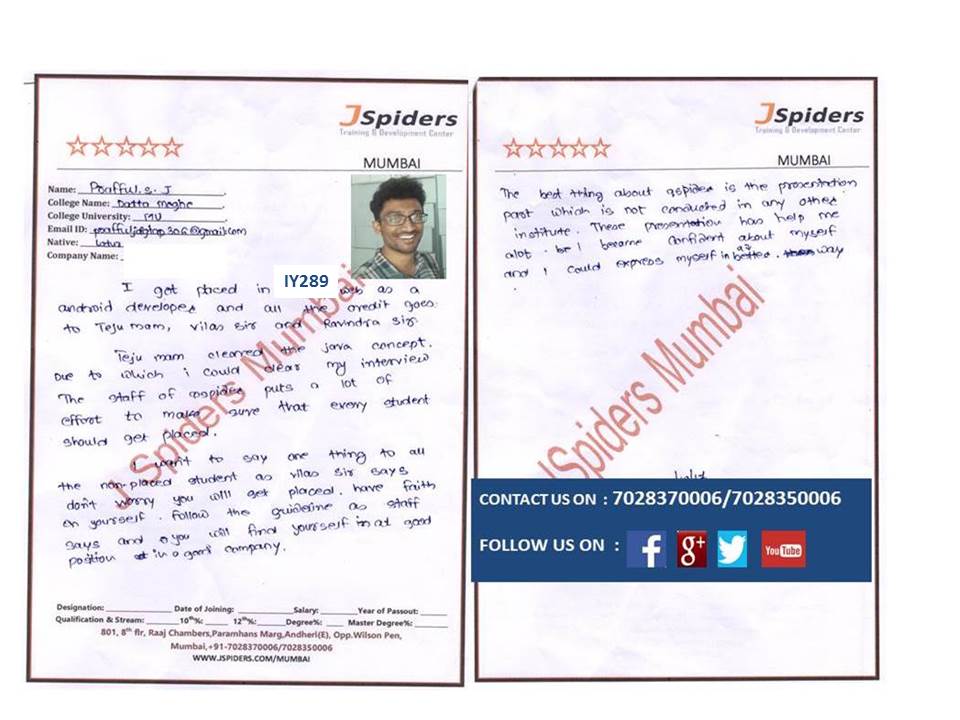 JSpiders
Training & Development Center
MUMBAI
Name: Prafful. S. J
College Name: Datta Meghe
College University: MU
Email ID: praffuljagtap306@gmail.com
Native: Latur
Company Name:
I got placed in IY289 web as a
android developer and all the credit goes
to Teju mam, vilas sir and Ravindra sir.
Teju mam cleared the java concept.
Due to which i could clear my interview
The staff of qspider puts a lot of
effort to make sure that every student
should get placed.
I want to say one thing to all
the non-placed student as vilas sir says
don't worry you will get placed. have faith
on yourself. Follow the guideline as staff
says and you will find yourself in at good
position in a good company.
Designation: Date of Joining: Salary: Year of Passout:
Qualification & Stream: 10th%: 12th%: Degree%: Master Degree%:
801, 8th flr, Raaj Chambers,Paramhans Marg,Andheri(E), Opp.Wilson Pen,
Mumbai,+91-7028370006/7028350006
WWW.JSPIDERS.COM/MUMBAI
JSpiders Mumbai
JSpiders
Training & Development Center
MUMBAI
The best thing about qspider is the presentation
part which is not conducted in any other
institute. These presentation has help me
alot. be I became confident about myself
and I could express myself in better way
JSpiders Mumbai
CONTACT US ON : 7028370006/7028350006
FOLLOW US ON :
f
g+
You Tube